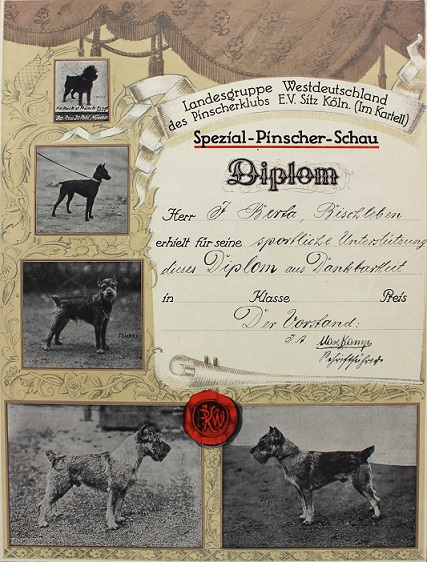 Landesgruppe Westdeutschland
des Pinscherklubs E.V. Sitz Köln. (Im Kartell)
Spezial-Pinscher-Schau
Diplom
Herr F Berta, Bischleben
erhielt für seine sportliche Unterstützung
dieses Diplom aus Dankbarkeit
in Klasse Preis
Der Vorstand:
I.A. Max Kamp
Schriftführer